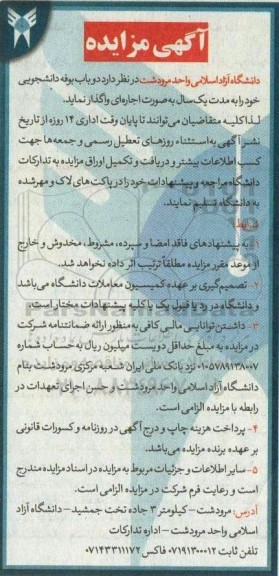 آگهی مزایده
دانشگاه آزاد اسلامی واحد مرودشت در نظر دارد دو باب بوفه دانشجویی
خود را به مدت یک سال به صورت اجاره‌ای واگذار نماید.
لذا کلیه متقاضیان می‌توانند تا پایان وقت اداری ۱۴ روزه از تاریخ
نشر آگهی به استثناء روزهای تعطیل رسمی و جمعه‌ها جهت
کسب اطلاعات بیشتر و دریافت و تکمیل اوراق مزایده به تدارکات
دانشگاه مراجعه و پیشنهادات خود را در پاکت‌های لاک و مهر شده
به دانشگاه تسلیم نمایند.
شرایط:
۱- به پیشنهادهای فاقد امضا و سپرده، مشروط، مخدوش و خارج
از موعد مقرر مزایده مطلقاً ترتیب اثر داده نخواهد شد.
۲- تصمیم‌گیری بر عهده کمیسیون معاملات دانشگاه می‌باشد
و دانشگاه در رد یا قبول یک یا کلیه پیشنهادات مختار است.
۳- داشتن توانایی مالی کافی به منظور ارائه ضمانتنامه شرکت
در مزایده به مبلغ حداقل دویست میلیون ریال به حساب شماره
۰۱۰۵۷۸۹۱۳۸۰۰۷ نزد بانک ملی ایران شعبه مرکزی مرودشت بنام
دانشگاه آزاد اسلامی واحد مرودشت و حسن اجرای تعهدات در
رابطه با مزایده الزامی است.
۴- پرداخت هزینه چاپ و درج آگهی در روزنامه و کسورات قانونی
بر عهده برنده مزایده می‌باشد.
۵- سایر اطلاعات و جزئیات مربوط به مزایده در اسناد مزایده مندرج
است و رعایت فرم شرکت در مزایده الزامی است.
آدرس: مرودشت – کیلومتر ۳ جاده تخت جمشید – دانشگاه آزاد
اسلامی واحد مرودشت – اداره تدارکات
تلفن ثابت ۰۷۱۹۱۳۰۰۰۱۲ فاکس ۰۷۱۴۳۳۱۱۱۷۲